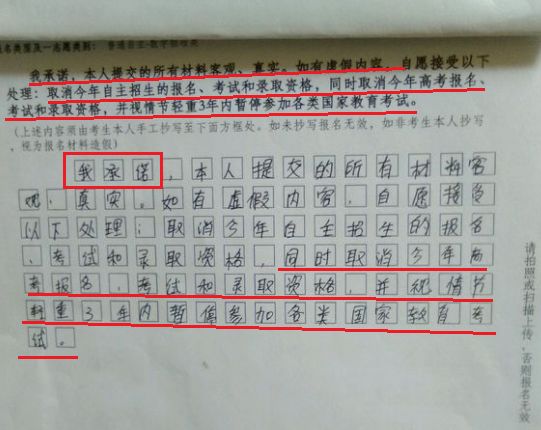 报名类型及一志愿类别：普通自主-数学
我承诺，本人提交的所有材料客观、真实。如有虚假内容，自愿接受以下
处理：取消今年自主招生的报名、考试和录取资格，同时取消今年高考报名、
考试和录取资格，并视情节轻重3年内暂停参加各类国家教育考试。
（上述内容须由考生本人手工抄写至下面方框处。如未抄写报名无效，如非考生本人抄写
，视为报名材料造假）
我承诺，本人提交的所有材料客
观、真实。如有虚假内容，自愿接受
以下处理：取消今年自主招生的报名
、考试和录取资格，同时取消今年高
考报名、考试和录取资格，并视情节
轻重3年内暂停参加各类国家教育考
试。
请拍照或扫描上传，否则报名无效